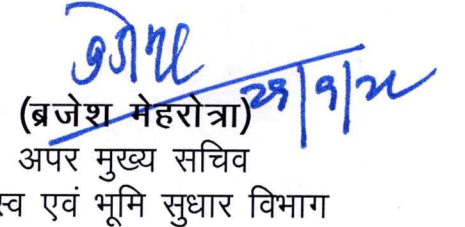 (ब्रजेश मेहरोत्रा)
अपर मुख्य सचिव
स्व एवं भूमि सुधार विभाग